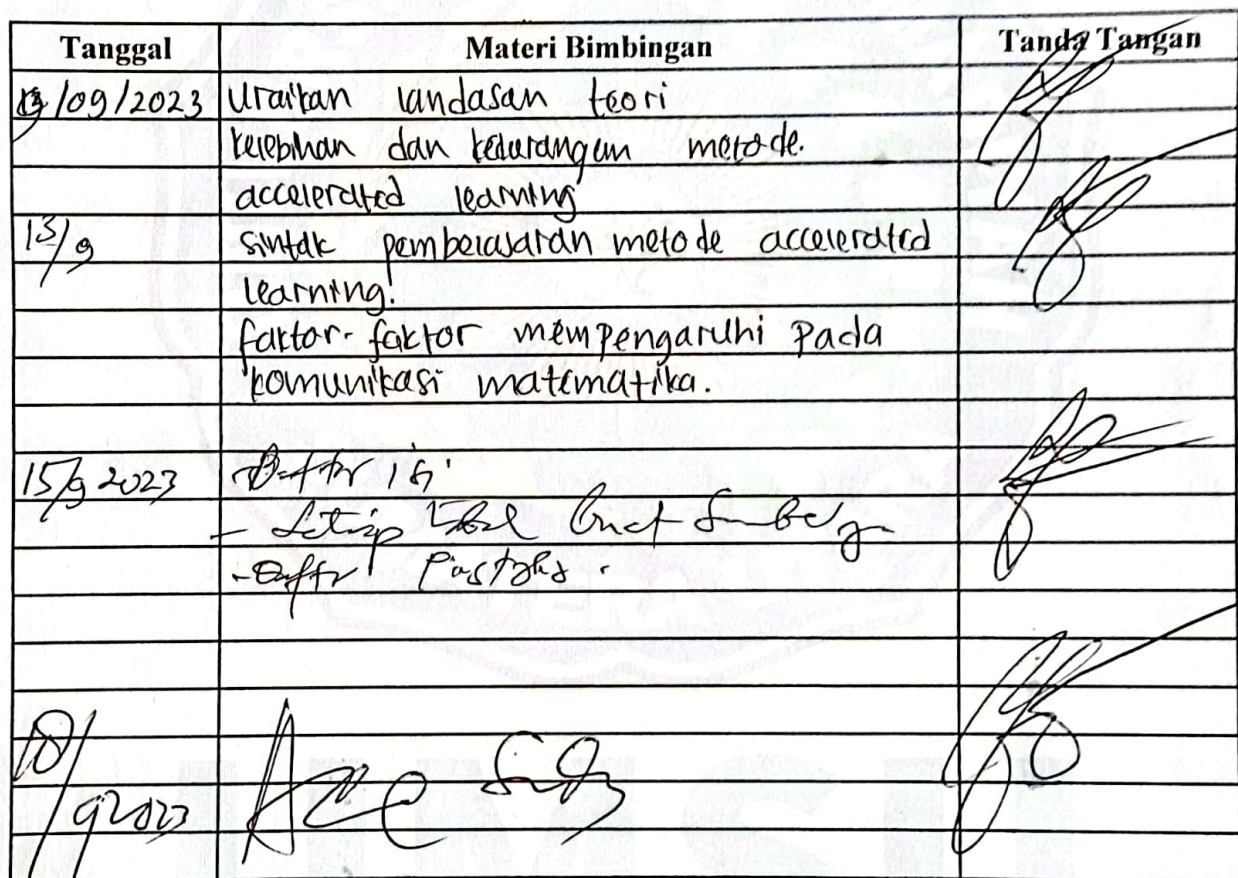 Tanggal Materi Bimbingan Tanda Tangan
/09/2023 Uraikan landasan teori
kelebihan dan kekurangan metode.
accelerated learning
13/9 sintak pembelajaran metode accelerated
learning.
faktor-faktor mempengaruhi pada
komunikasi matematika.
15/9 2023 - Daftar isi
- Setiap tabel
- Daftar Pustaka.
18/9 2023 Acc